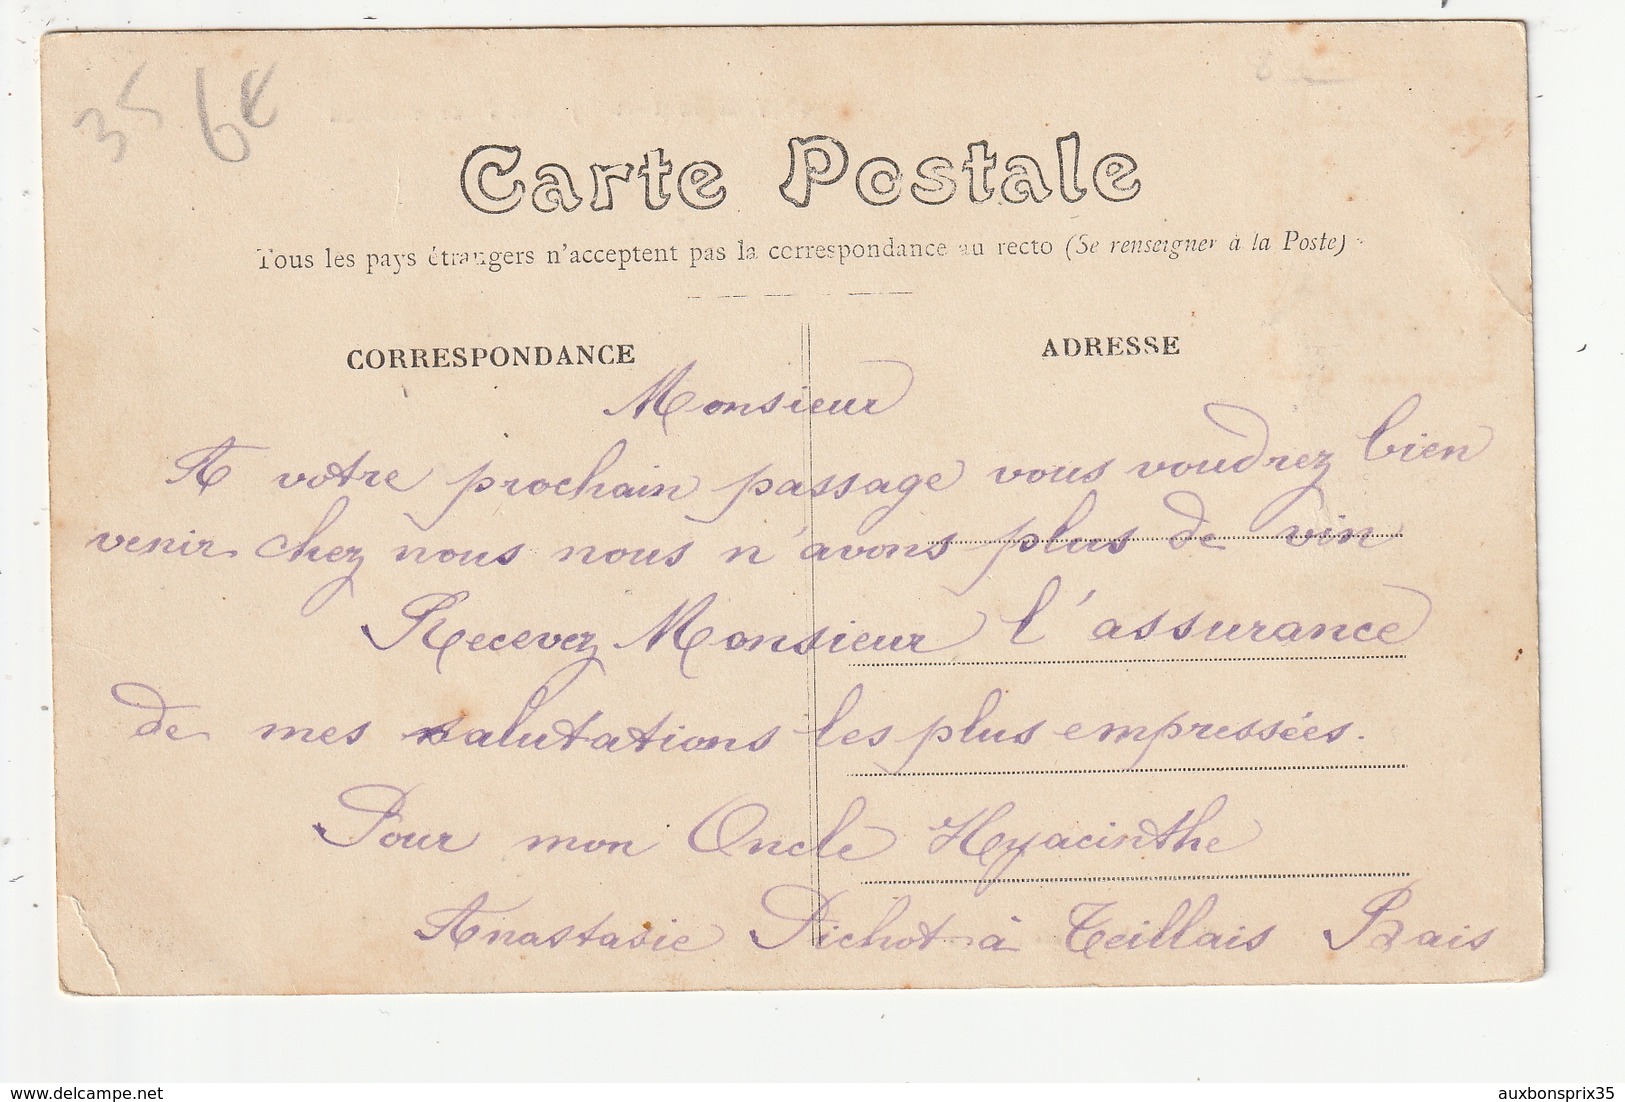 35 6€
Carte Postale
Tous les pays étrangers n'acceptent pas la correspondance au recto (Se renseigner à la Poste)
CORRESPONDANCE
ADRESSE
Monsieur
A votre prochain passage vous voudrez bien
venir chez nous nous n'avons plus de vin
Recevez Monsieur l'assurance
de mes salutations les plus empressées.
Pour mon Oncle Hyacinthe
Anastasie Pichot à Teillais Bais
delcampe.net
auxbonsprix35